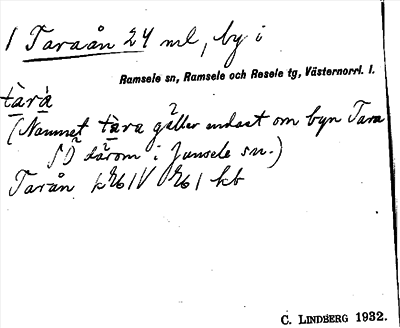 1 Taraån 24 ml, by i
Ramsele sn, Ramsele och Resele tg, Västernorrl. l.
tàrà
(Namnet tàra gäller endast om byn Tara
SO därom i Junsele sn.)
Tarån
C. LINDBERG 1932.